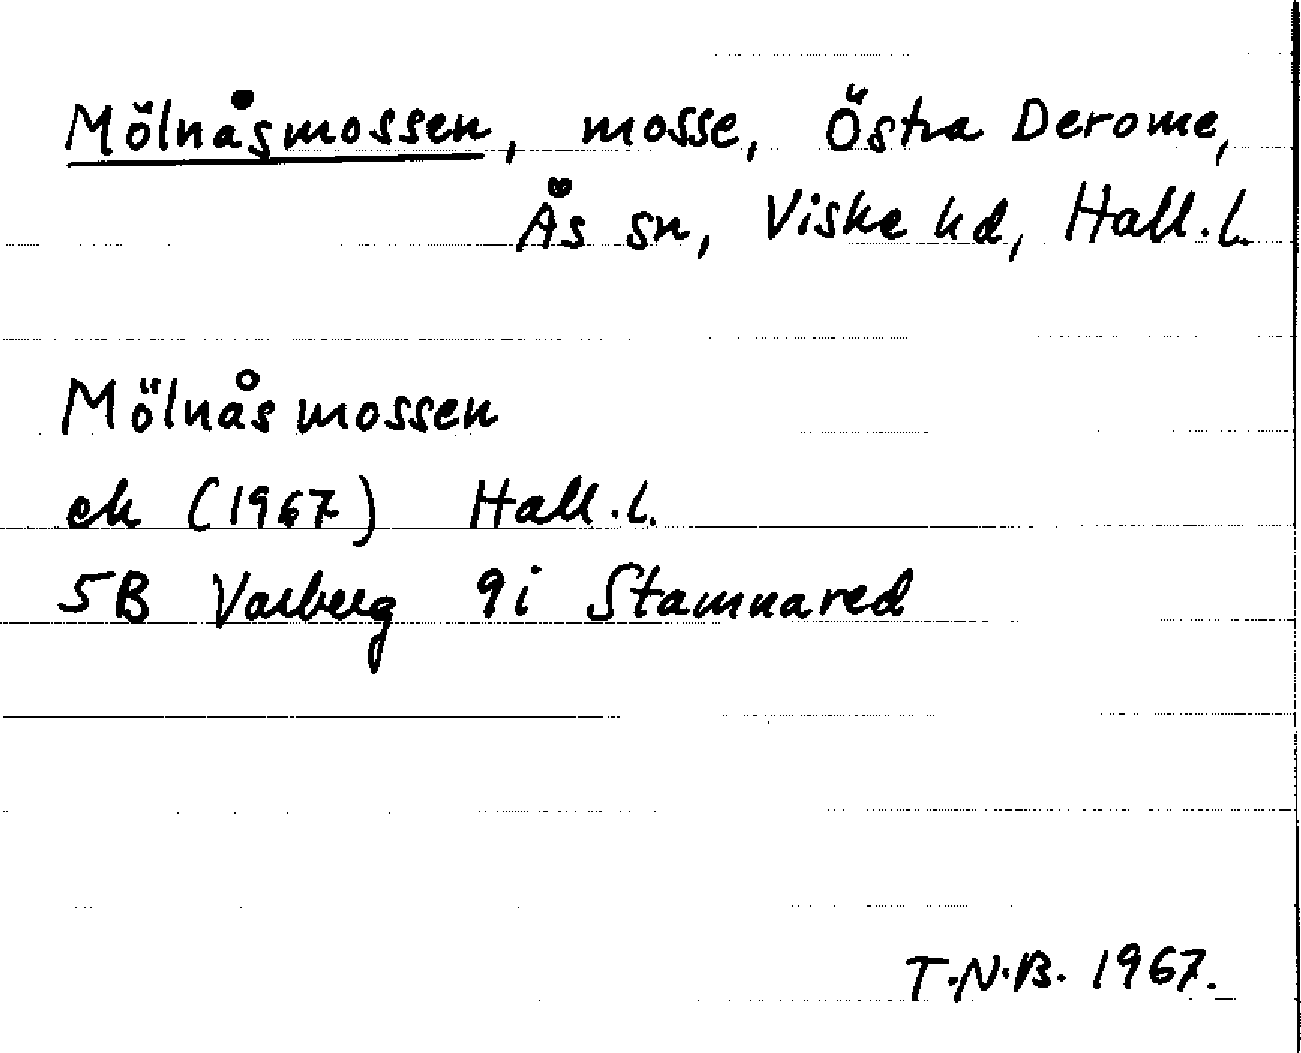 Mölnåsmossen, mosse, Östra Derome,
Ås sn, Viske hd, Hall.l.
Mölnåsmossen
ek (1967) Hall.l.
5B Varberg 9i Stamnared
T.N.B. 1967.